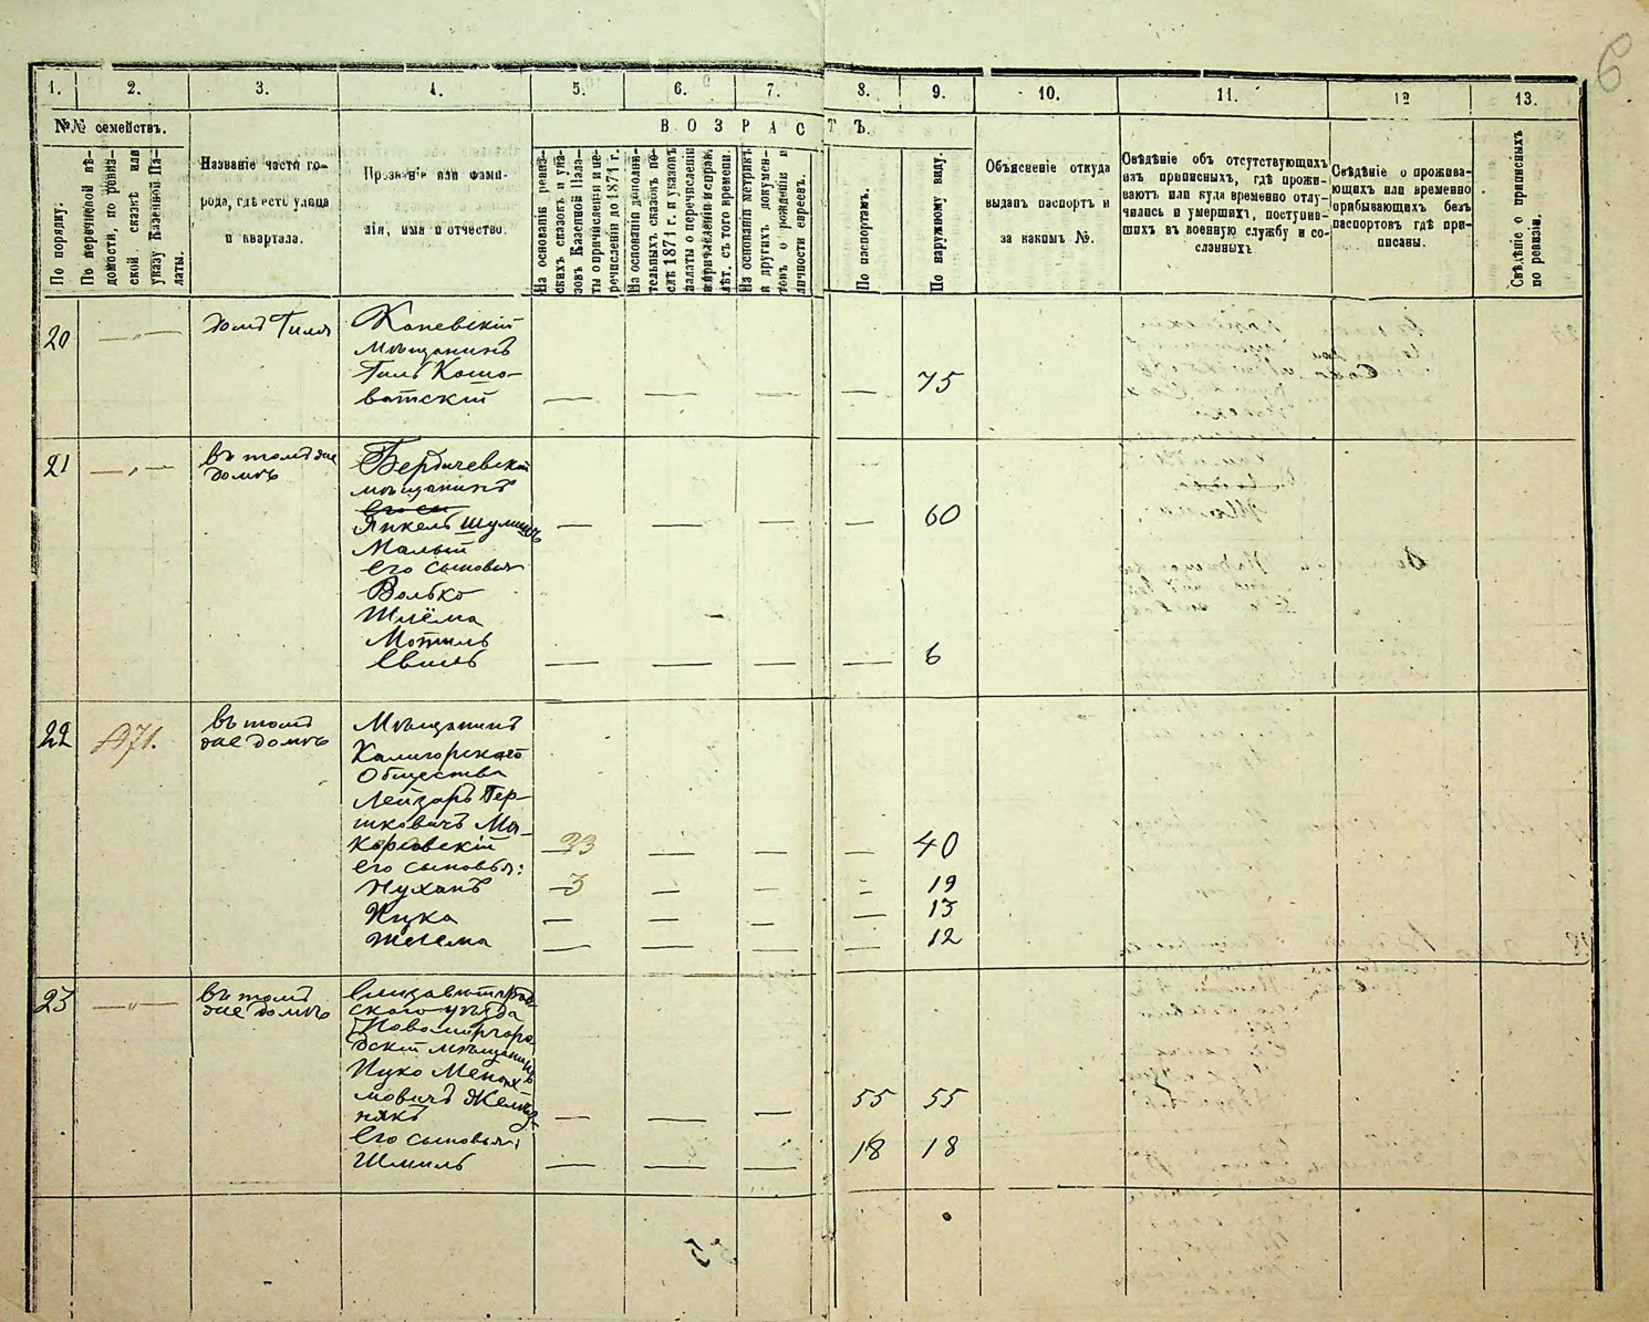 6
1. 2. 3. 4. 5. 6. 7. 8. 9. 10. 11. 12 13.
№№ семействъ.
ВОЗРАСТЪ.
По порядку.
По перечневой вѣ-
домости, по ревиз-
ской сказкѣ или
указу Казенной Па-
латы.
Названіе части го-
рода, гдѣ есть улица
и квартала.
Прозваніе или фами-
лія, имя и отчество.
На основаніи ревиз-
скихъ сказокъ и ука-
зовъ Казенной Пала-
ты о причисленіи и пе-
речисленіи до 1871 г.
На основаніи дополни-
тельныхъ сказокъ по-
слѣ 1871 г. и указовъ
палаты о перечисленіи
и причисленіи и справ.
лѣт. съ того времени.
На основаніи метрикъ
и другихъ докумен-
товъ о рожденіи и
личности евреевъ.
По паспортамъ.
По наружному виду.
Объясненіе откуда
выданъ паспортъ и
за какимъ №.
Свѣдѣніе объ отсутствующихъ
изъ приписныхъ, гдѣ прожи-
ваютъ или куда временно отлу-
чились и умершихъ, поступив-
шихъ въ военную службу и со-
сланныхъ
Свѣдѣніе о прожива-
ющихъ или временно
прибывающихъ безъ
паспортовъ гдѣ при-
писаны.
Свѣдѣніе о приписныхъ
по ревизіи.
20 — „ — домъ Гиля Каневскій
мѣщанинъ
Гиль Кошо-
ватскій — — — 75
21 — „ — въ томъ же
домѣ
Бердичевскій
мѣщанинъ
Янкель Шулимъ — — — — 60
Малый
его сыновья
Волько
Шлёма
Мотель
— — — — 6
22 А71. въ томъ
же домѣ
Мѣщанинъ
Калигорскаго
Общества
Лейзоръ Гер-
шковичъ Ма-
каровскій 33 — — — 40
его сыновья:
Нуханъ 3 — — — 19
Ицка — — — — 13
Шлема — — — — 12
23 — „ — въ томъ
же домѣ
Елизаветград-
скаго уѣзда
Новомиргоро-
дскій мѣщанинъ
Ицко Менах-
мовичъ Желѣз-
някъ — — — 55 55
его сыновья:
Шмиль — — — 18 18